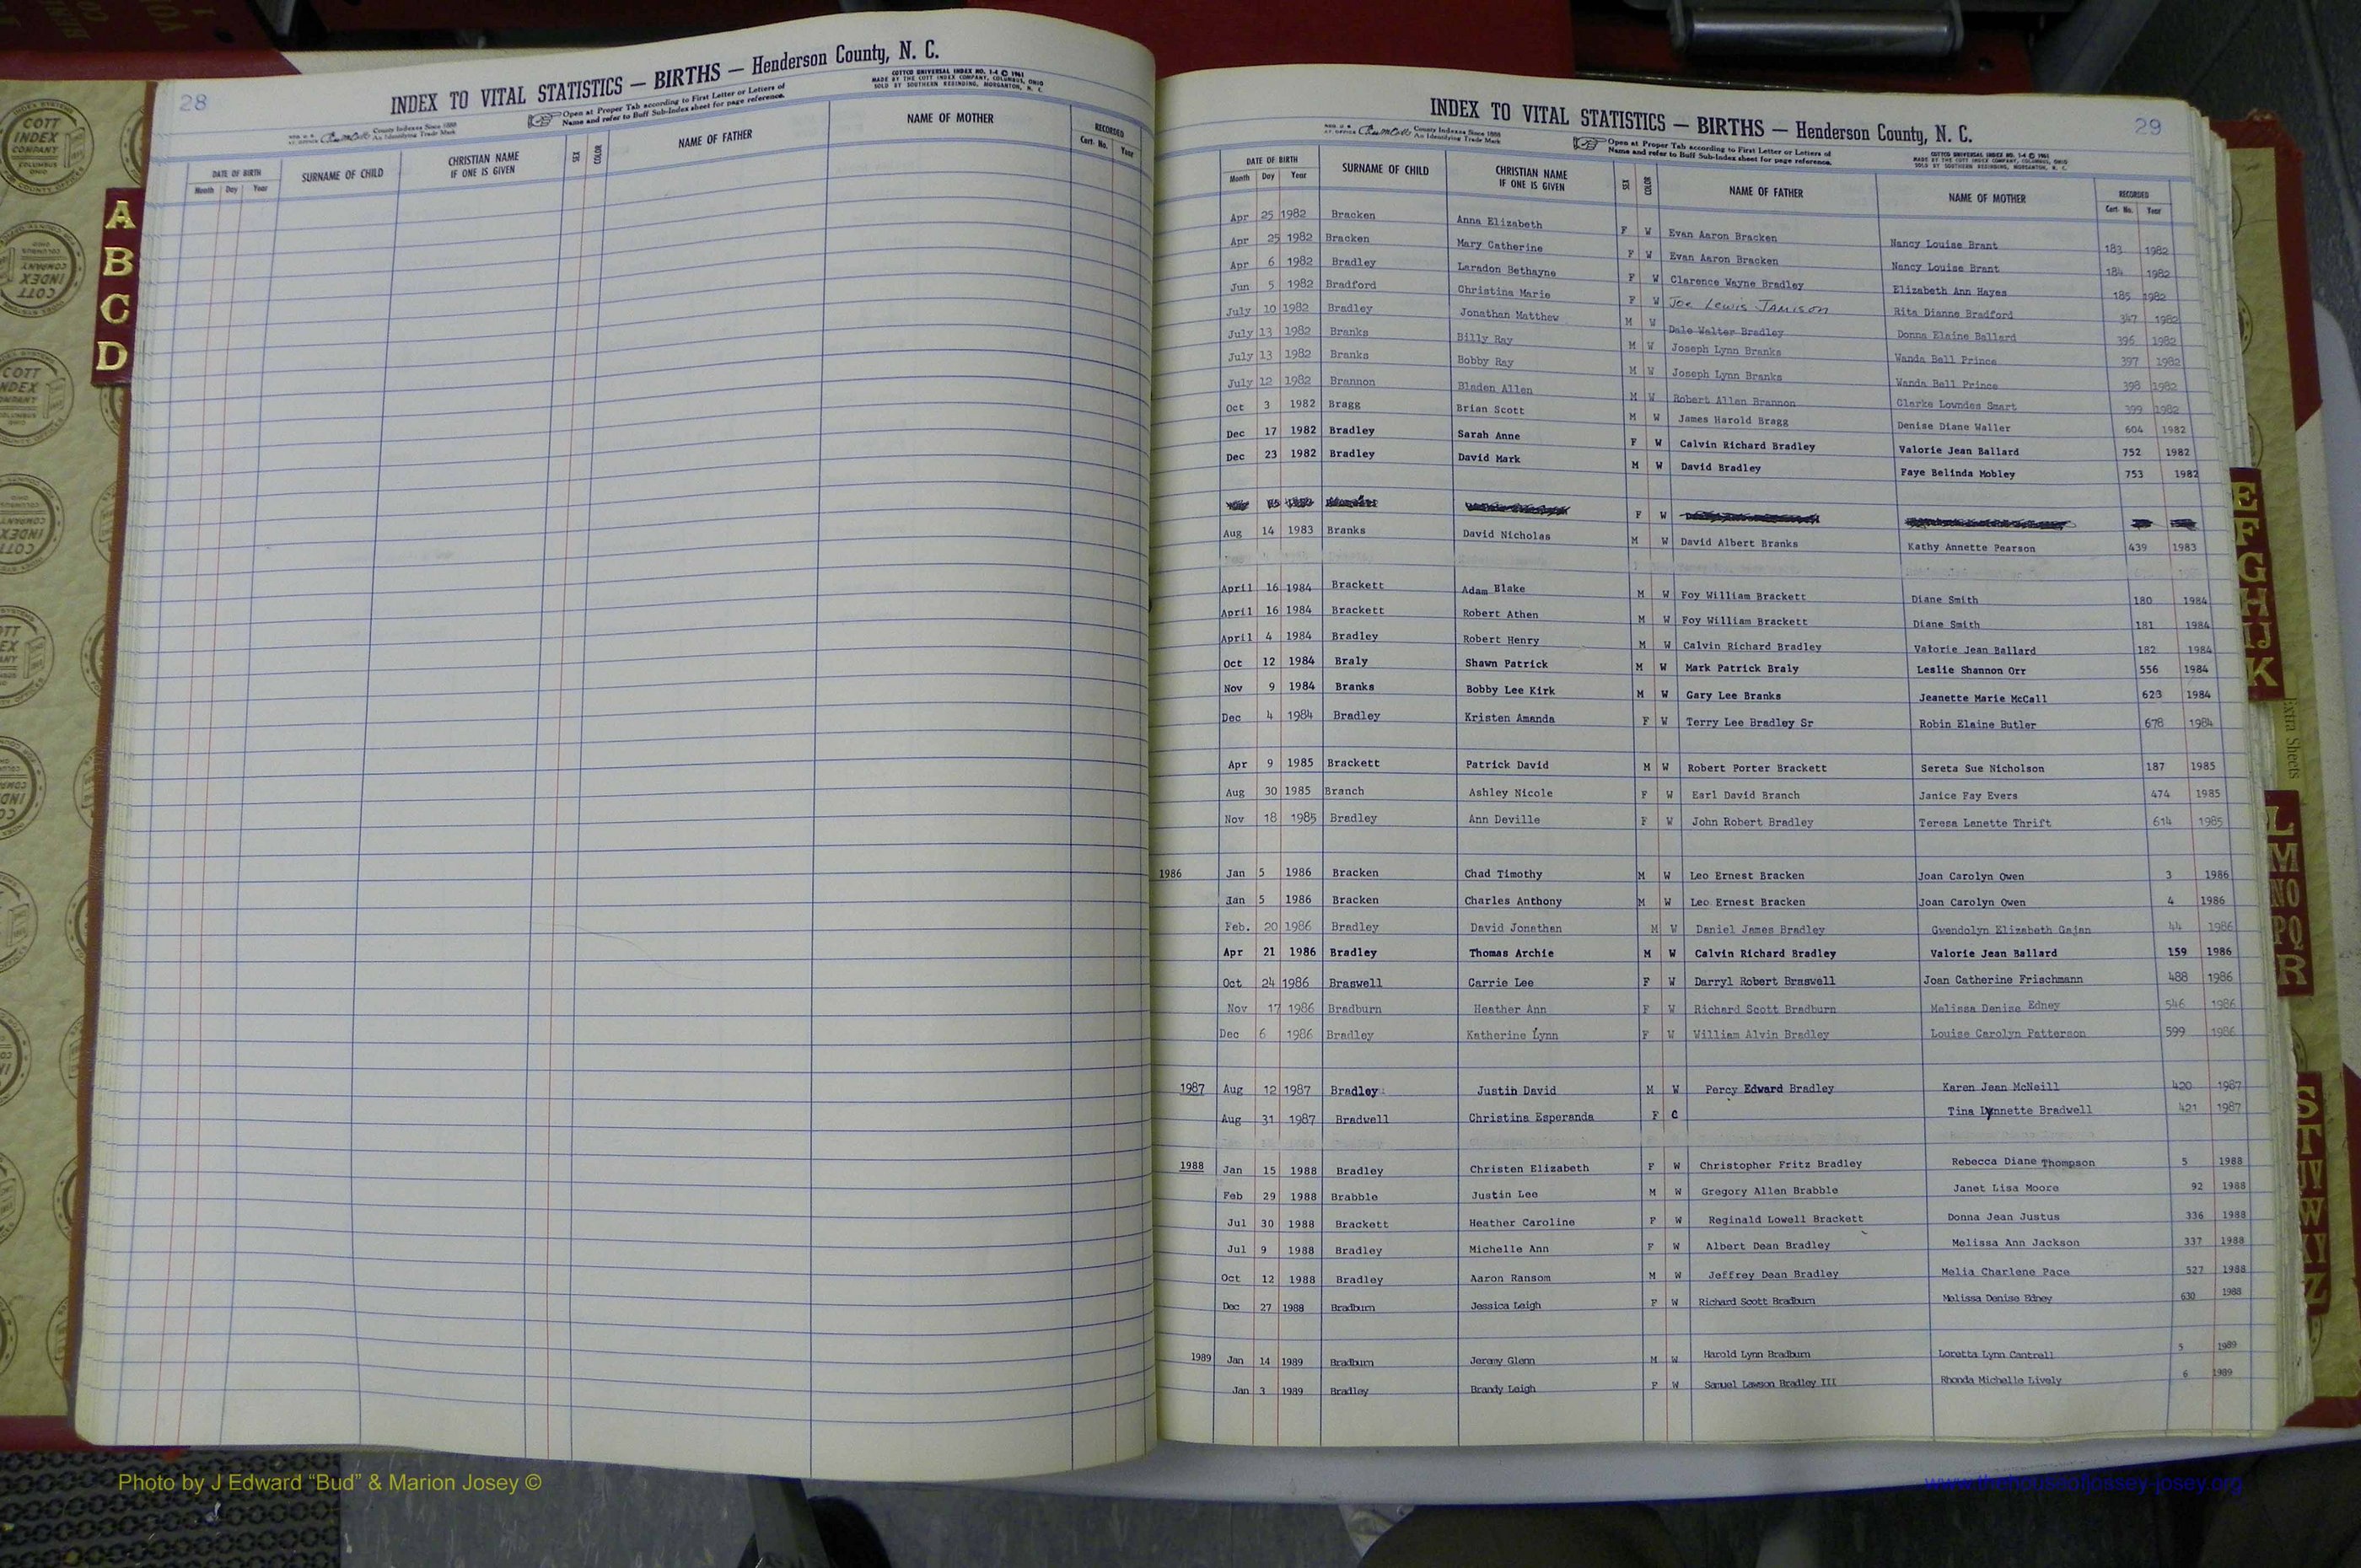 28
INDEX TO VITAL STATISTICS — BIRTHS — Henderson County, N. C.
COTTCO UNIVERSAL INDEX NO. 1-4 © 1961
MADE BY THE COTT INDEX COMPANY, COLUMBUS, OHIO
SOLD BY SOUTHERN REBINDING, MORGANTON, N. C.
County Indexes Since 1888
An Identifying Trade Mark
Open at Proper Tab according to First Letter or Letters of
Name and refer to Buff Sub-Index sheet for page reference.
DATE OF BIRTH SURNAME OF CHILD CHRISTIAN NAME IF ONE IS GIVEN SEX COLOR NAME OF FATHER NAME OF MOTHER RECORDED
Month Day Year Cert. No. Year
A
B
C
D
COTT INDEX COMPANY COLUMBUS OHIO
29
INDEX TO VITAL STATISTICS — BIRTHS — Henderson County, N. C.
County Indexes Since 1888
An Identifying Trade Mark
Open at Proper Tab according to First Letter or Letters of
Name and refer to Buff Sub-Index sheet for page reference.
COTTCO UNIVERSAL INDEX NO. 1-4 © 1961
MADE BY THE COTT INDEX COMPANY, COLUMBUS, OHIO
SOLD BY SOUTHERN REBINDING, MORGANTON, N. C.
DATE OF BIRTH SURNAME OF CHILD CHRISTIAN NAME IF ONE IS GIVEN SEX COLOR NAME OF FATHER NAME OF MOTHER RECORDED
Month Day Year Cert. No. Year
Apr 25 1982 Bracken Anna Elizabeth F W Evan Aaron Bracken Nancy Louise Brant 183 1982
Apr 25 1982 Bracken Mary Catherine F W Evan Aaron Bracken Nancy Louise Brant 184 1982
Apr 6 1982 Bradley Laradon Bethayne F W Clarence Wayne Bradley Elizabeth Ann Hayes 185 1982
Jun 5 1982 Bradford Christina Marie F W Joe Lewis Jamison Rita Dianne Bradford 347 1982
July 10 1982 Bradley Jonathan Matthew M W Dale Walter Bradley Donna Elaine Ballard 396 1982
July 13 1982 Branks Billy Ray M W Joseph Lynn Branks Wanda Bell Prince 397 1982
July 13 1982 Branks Bobby Ray M W Joseph Lynn Branks Wanda Bell Prince 398 1982
July 12 1982 Brannon Bladen Allen M W Robert Allen Brannon Clarke Lowndes Smart 399 1982
Oct 3 1982 Bragg Brian Scott M W James Harold Bragg Denise Diane Waller 604 1982
Dec 17 1982 Bradley Sarah Anne F W Calvin Richard Bradley Valorie Jean Ballard 752 1982
Dec 23 1982 Bradley David Mark M W David Bradley Faye Belinda Mobley 753 1982
F W
Aug 14 1983 Branks David Nicholas M W David Albert Branks Kathy Annette Pearson 439 1983
April 16 1984 Brackett Adam Blake M W Foy William Brackett Diane Smith 180 1984
April 16 1984 Brackett Robert Athen M W Foy William Brackett Diane Smith 181 1984
April 4 1984 Bradley Robert Henry M W Calvin Richard Bradley Valorie Jean Ballard 182 1984
Oct 12 1984 Braly Shawn Patrick M W Mark Patrick Braly Leslie Shannon Orr 556 1984
Nov 9 1984 Branks Bobby Lee Kirk M W Gary Lee Branks Jeanette Marie McCall 623 1984
Dec 4 1984 Bradley Kristen Amanda F W Terry Lee Bradley Sr Robin Elaine Butler 678 1984
Apr 9 1985 Brackett Patrick David M W Robert Porter Brackett Sereta Sue Nicholson 187 1985
Aug 30 1985 Branch Ashley Nicole F W Earl David Branch Janice Fay Evers 474 1985
Nov 18 1985 Bradley Ann Deville F W John Robert Bradley Teresa Lenette Thrift 614 1985
1986 Jan 5 1986 Bracken Chad Timothy M W Leo Ernest Bracken Joan Carolyn Owen 3 1986
Jan 5 1986 Bracken Charles Anthony M W Leo Ernest Bracken Joan Carolyn Owen 4 1986
Feb. 20 1986 Bradley David Jonathan M W Daniel James Bradley Gwendolyn Elizabeth Gajan 44 1986
Apr 21 1986 Bradley Thomas Archie M W Calvin Richard Bradley Valorie Jean Ballard 159 1986
Oct 24 1986 Braswell Carrie Lee F W Darryl Robert Braswell Joan Catherine Frischmann 488 1986
Nov 17 1986 Bradburn Heather Ann F W Richard Scott Bradburn Melissa Denise Edney 546 1986
Dec 6 1986 Bradley Katherine Lynn F W William Alvin Bradley Louise Carolyn Patterson 599 1986
1987 Aug 12 1987 Bradley Justin David M W Percy Edward Bradley Karen Jean McNeill 420 1987
Aug 31 1987 Bradwell Christina Esperanda F C Tina Lynnette Bradwell 421 1987
1988 Jan 15 1988 Bradley Christen Elizabeth F W Christopher Fritz Bradley Rebecca Diane Thompson 5 1988
Feb 29 1988 Brabble Justin Lee M W Gregory Allen Brabble Janet Lisa Moore 92 1988
Jul 30 1988 Brackett Heather Caroline F W Reginald Lowell Brackett Donna Jean Justus 336 1988
Jul 9 1988 Bradley Michelle Ann F W Albert Dean Bradley Melissa Ann Jackson 337 1988
Oct 12 1988 Bradley Aaron Ransom M W Jeffrey Dean Bradley Melia Charlene Pace 527 1988
Dec 27 1988 Bradburn Jessica Leigh F W Richard Scott Bradburn Melissa Denise Edney 630 1988
1989 Jan 14 1989 Bradburn Jeremy Glenn M W Harold Lynn Bradburn Loretta Lynn Cantrell 5 1989
Jan 3 1989 Bradley Brandy Leigh F W Samuel Lawson Bradley III Rhonda Michelle Lively 6 1989
E
F
G
H
IJ
K
Extra Sheets
L
M
NO
PQ
R
S
T
UV
W
Z
Photo by J Edward “Bud” & Marion Josey ©
www.thehouseofjossey-josey.org